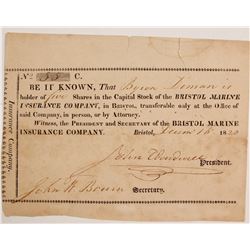 No 55 C.
BE IT KNOWN, That Byron Diman is
holder of five Shares in the Capital Stock of the BRISTOL MARINE
INSURANCE COMPANY, in BRISTOL, transferable only at the Office of
said Company, in person, or by Attorney.
Witness, the PRESIDENT and SECRETARY of the BRISTOL MARINE
INSURANCE COMPANY. Bristol, 18
John
President.
John W. Bourn
Secretary.
Insurance Company.